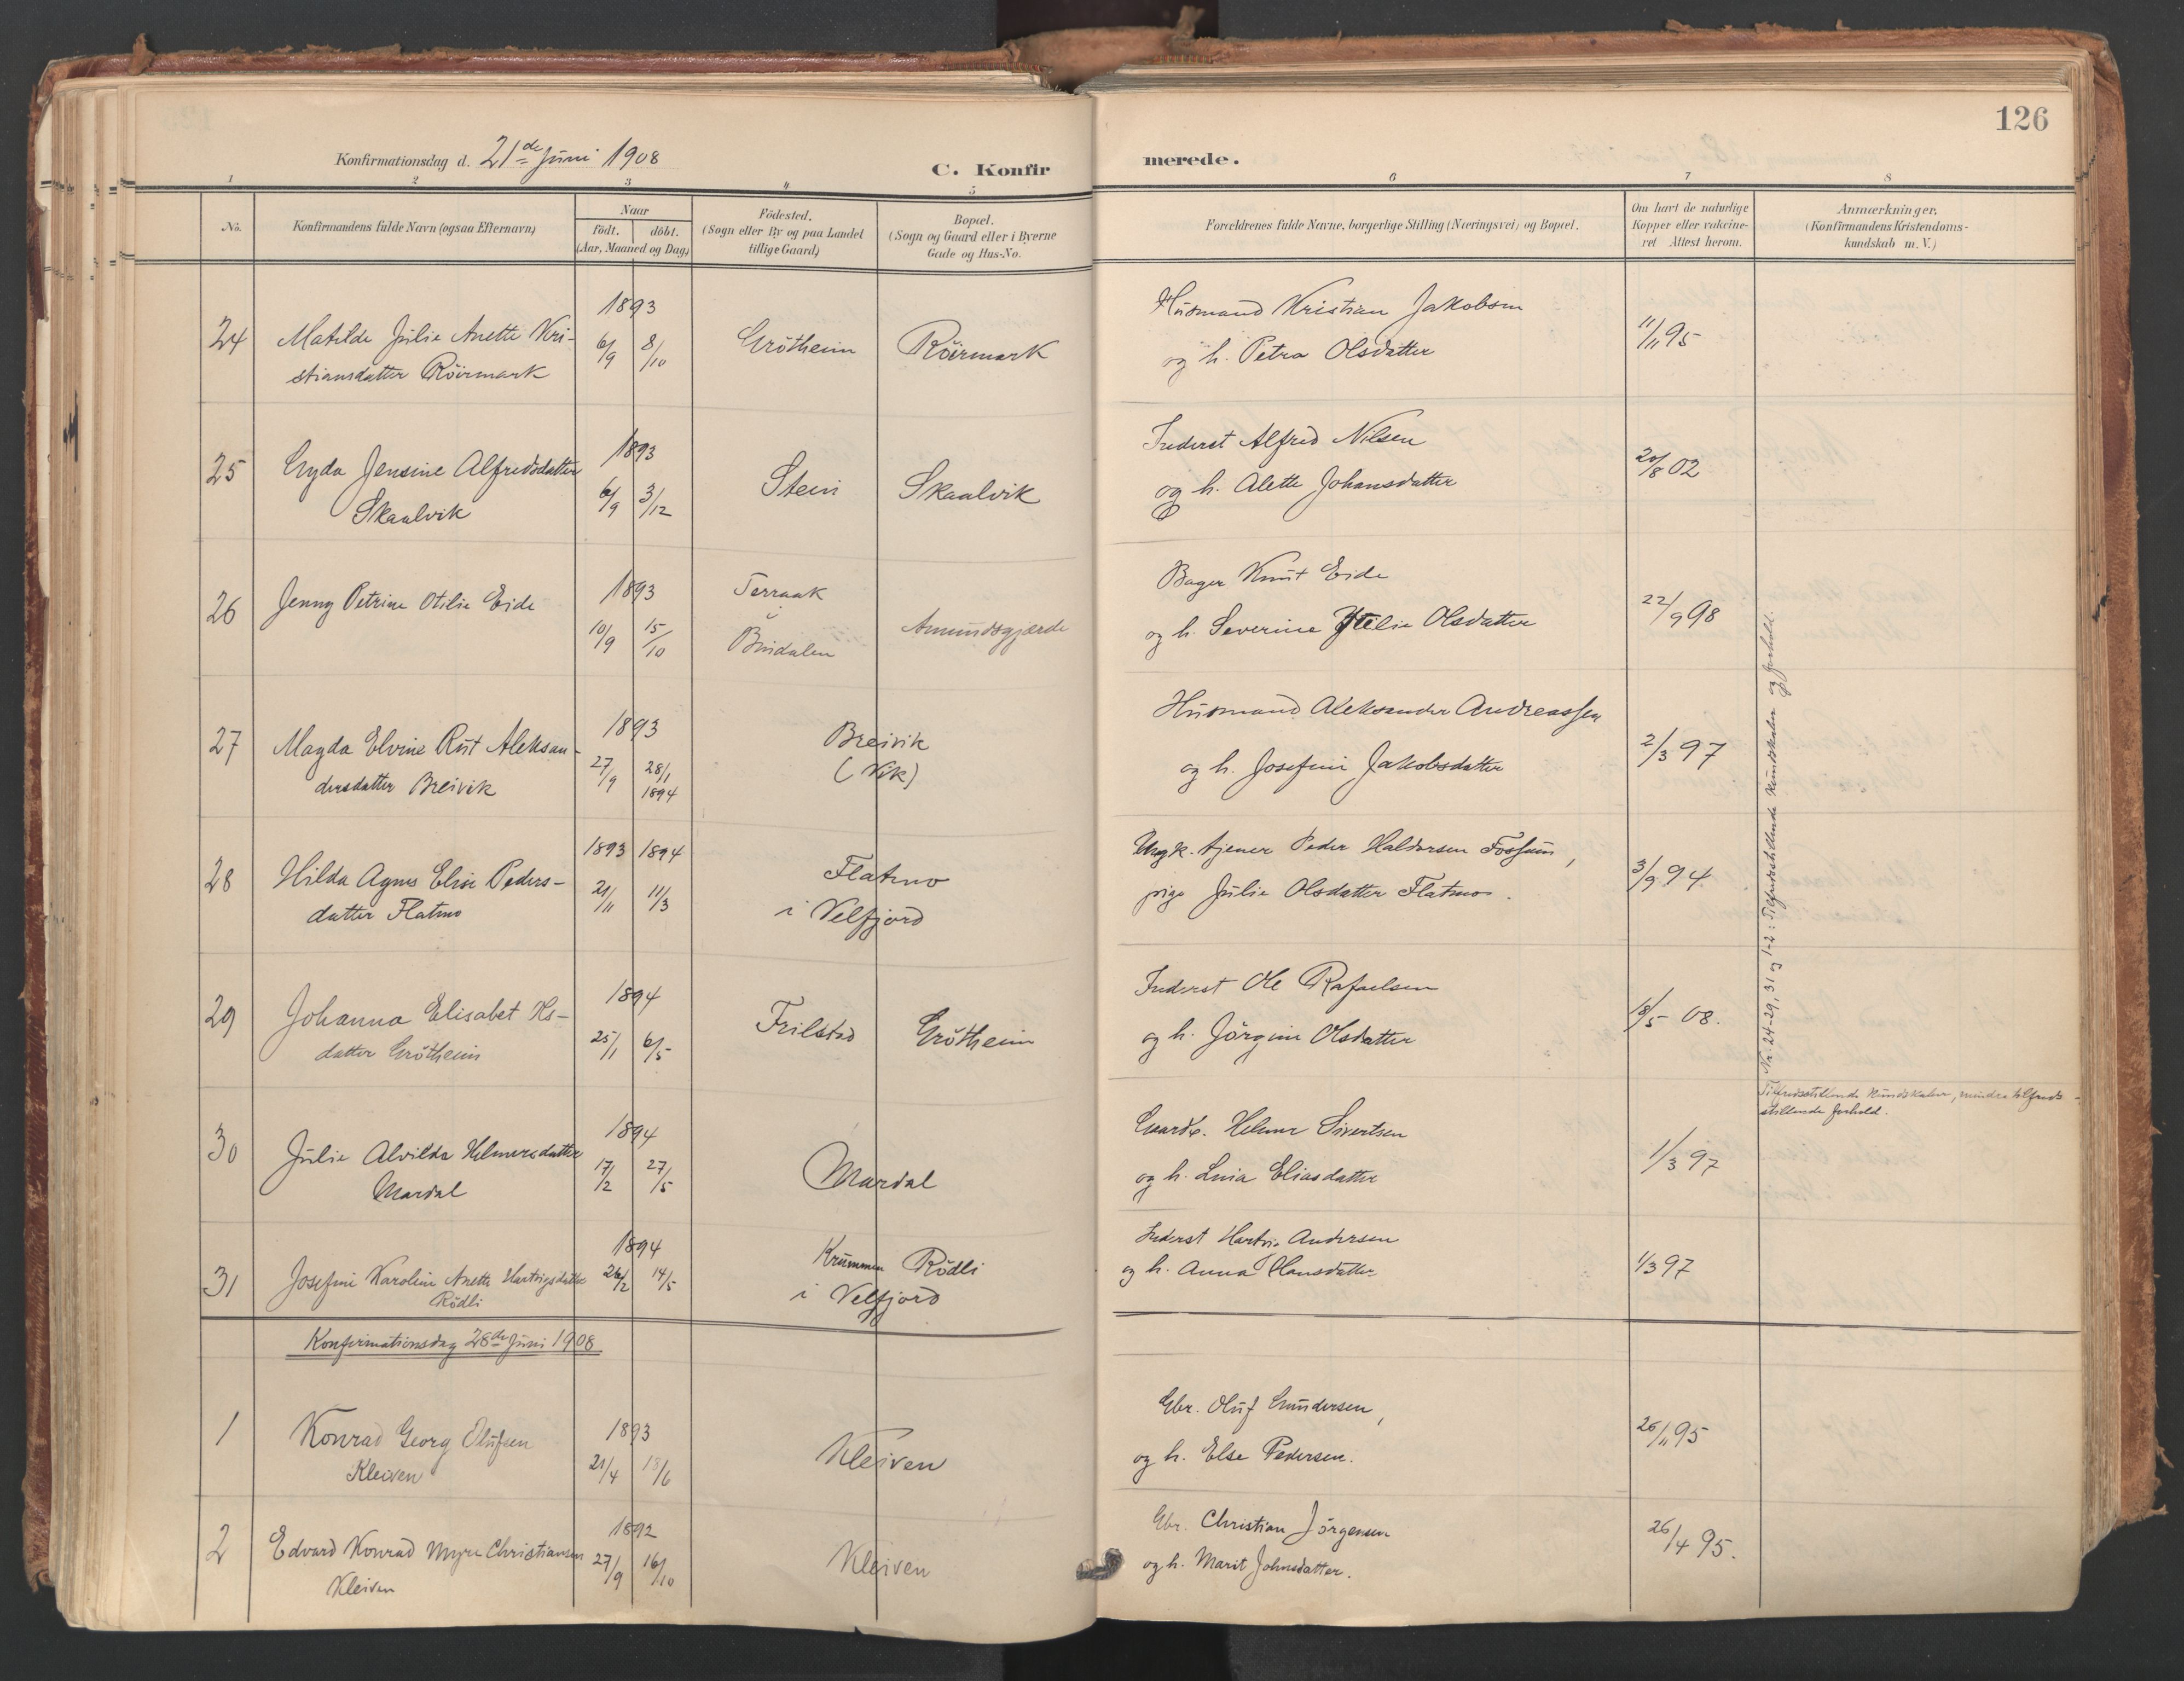 126
Konfirmationsdag d. 21de Juni 1908
C. Konfirmerede.
1 2 3 4 5 6 7 8
No.
Konfirmandens fulde Navn (ogsaa Efternavn)
Naar
födt. döbt.
(Aar, Maaned og Dag)
Födested.
(Sogn eller By og paa Landet
tillige Gaard)
Bopæl.
(Sogn og Gaard eller i Byerne
Gade og Hus-No.
Forældrenes fulde Navne, borgerlige Stilling (Næringsvei) og Bopæl.
Om havt de naturlige
Kopper eller vakcine-
ret Attest herom.
Anmærkninger.
(Konfirmandens Kristendoms-
kundskab m. V.)
24 Matilde Julie Anette Kri-
stiansdatter Röirmark
1893
6/9 8/10
Grötheim Röirmark
Husmand Kristian Jakobsen
og h. Petra Olsdatter
11/11 95
25 Gyda Jensine Alfredsdatter
Skaalvik
1893
6/9 3/12
Stein Skaalvik
Inderst Alfred Nilsen
og h. Alette Johansdatter
20/8 02
26 Jenny Petrine Otilie Eide
1893
10/9 15/10
Terraak
i
Bindalen
Amundsgjærde
Bager Knut Eide
og h. Severine Otilie Olsdatter
22/9 98
27 Magda Elvine Rut Aleksan-
dersdatter Breivik
1893
27/9 28/1
1894
Breivik
(Vik)
Husmand Aleksander Andreassen
og h. Josefine Jakobsdatter
2/3 97
28 Hilda Agnes Elise Peders-
datter Flatmo
1893 1894
21/11 11/3
Flatmo
i Velfjord
Ungk. tjener Peder Haldorsen Fossum,
pige Julie Olsdatter Flatmo.
3/9 94
29 Johanna Elisabet Ols-
datter Grötheim
1894
25/1 6/5
Trilstad Grötheim
Inderst Ole Rafaelsen
og h. Jörgine Olsdatter
18/5 08.
Nr. 24-29, 31 og 1-2: Tilfredsstillende Kundskaber og forhold.
30 Julie Alvilda Helmersdatter
Mardal
1894
17/2 27/5
Mardal
Gaardb. Helmer Sivertsen
og h. Lina Eliasdatter
1/3 97
Tilfredsstillende Kundskaber, mindre tilfreds-
stillende forhold.
31 Josefine Karoline Anette Hartvigsdatter
Rödli
1894
26/2 14/5
Krummen Rödli
i Velfjord
Inderst Hartvig Andersen
og h. Anna Hansdatter
1/3 97
Konfirmationsdag 28de Juni 1908
1 Konrad Georg Olufsen
Kleiven
1893
21/4 18/6
Kleiven
Gbr. Oluf Gundersen,
og h. Else Pedersen.
26/11 95
2 Edvard Konrad Myre Christiansen
Kleiven
1892
27/9 16/10
Kleiven
Gbr. Christian Jörgensen
og h. Marit Johnsdatter.
26/4 95.